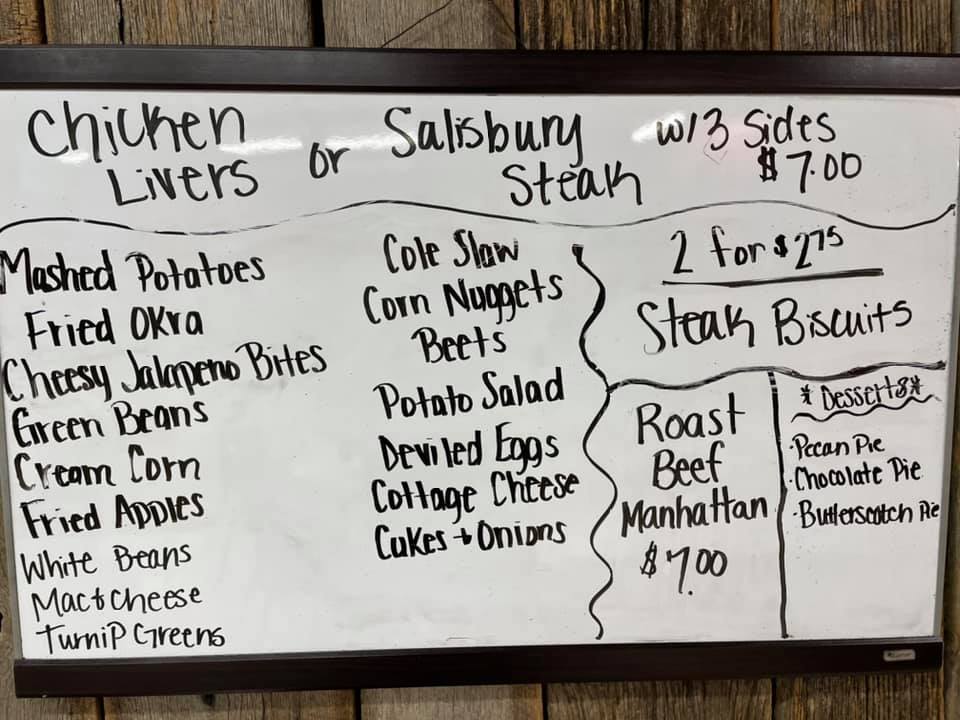 Chicken Livers or Salisbury Steak w/3 Sides $7.00
Mashed Potatoes
Fried Okra
Cheesy Jalapeno Bites
Green Beans
Cream Corn
Fried Apples
White Beans
Mac & Cheese
Turnip Greens
Cole Slaw
Corn Nuggets
Beets
Potato Salad
Deviled Eggs
Cottage Cheese
Cukes + Onions
2 for $2.75
Steak Biscuits
Roast
Beef
Manhattan
$7.00
* Desserts *
·Pecan Pie
·Chocolate Pie
·Butterscotch Pie